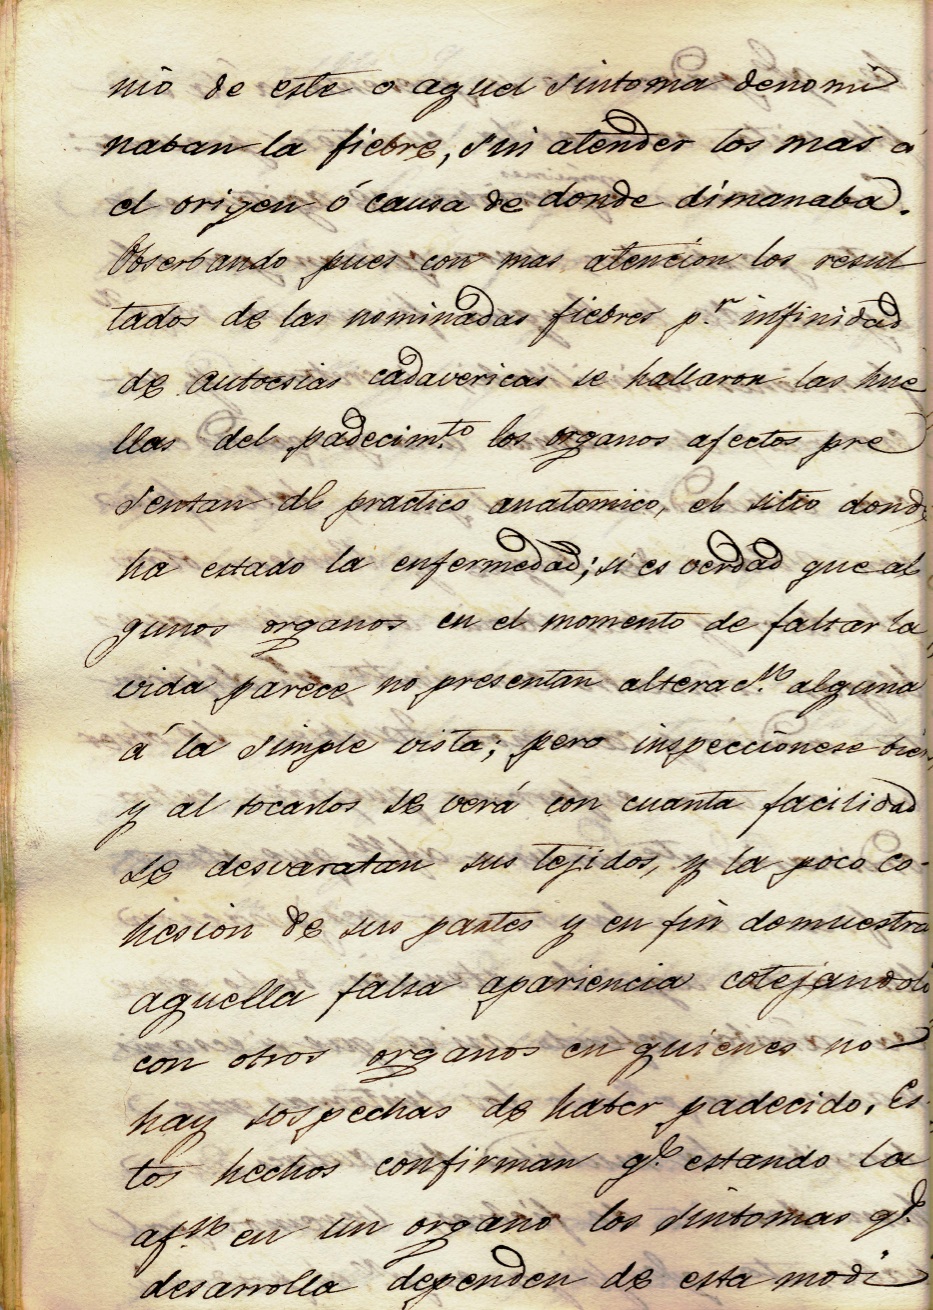 nió de este o aquel sintoma denomi
naban la fiebre, sin atender los mas á
el origen ó causa de donde dimanaba.
Obserbando pues con mas atencion los resul
tados de las nominadas fiebres p.r infinidad
de autocsias cadavericas se hallaron las hue
llas del padecim.to los organos afectos pre
sentan al practico anatomico, el sitio donde
ha estado la enfermedad; si es verdad que al
gunos organos en el momento de faltar la
vida parece no presentan alterac.n alguna
á la simple vista; pero inspeccionese bien
y al tocarlos se verá con cuanta facilidad
se desvaratan sus tejidos, y la poco co-
hesion de sus partes y en fin demuestra
aquella falsa apariencia cotejandolo
con otros organos en quienes no
hay sospechas de haber padecido. Es-
tos hechos confirman q.e estando la
af.n en un organo los sintomas q.e
desarrolla dependen de esta modi